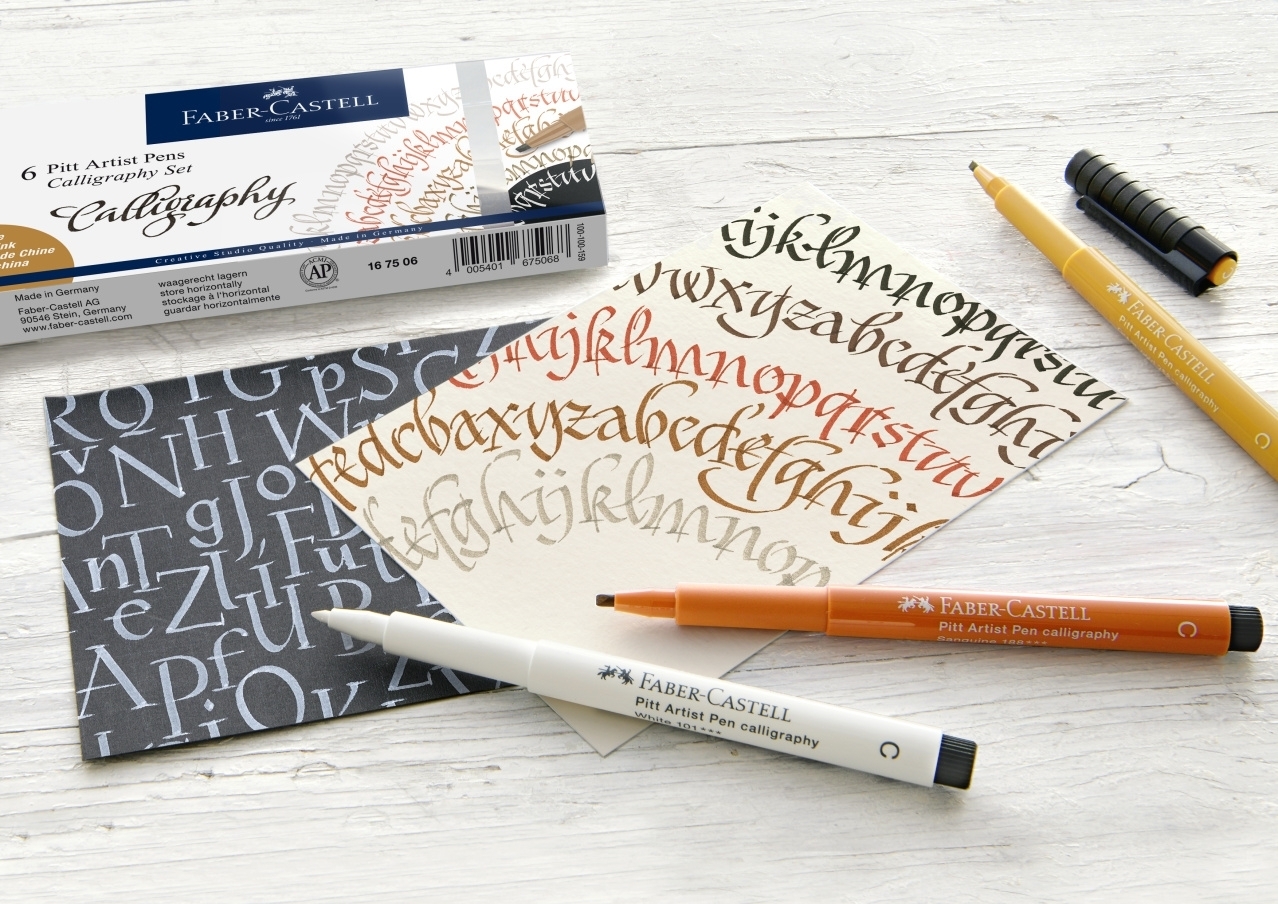 FABER-CASTELL
since 1761
6 Pitt Artist Pens
Calligraphy Set
Calligraphy
Creative Studio Quality · Made in Germany
ink
de Chine
china
Made in Germany
Faber-Castell AG
90546 Stein, Germany
www.faber-castell.com
waagerecht lagern
store horizontally
stockage à l'horizontal
guardar horizontalmente
ACMI
AP
16 75 06
4 005401 675068
100-100-159
ijklmnopqrstu
vwxyzabcdefghi
hijklmnopqrstuv
fedcbaxyzabcdefghijk
defghijklmnop
RQTGpS
NHW
gJo
nTFut
eZlí
UB
Apf
FABER-CASTELL
Pitt Artist Pen calligraphy
C
FABER-CASTELL
Pitt Artist Pen calligraphy
Sanguine 188***
C
FABER-CASTELL
Pitt Artist Pen calligraphy
White 101***
C